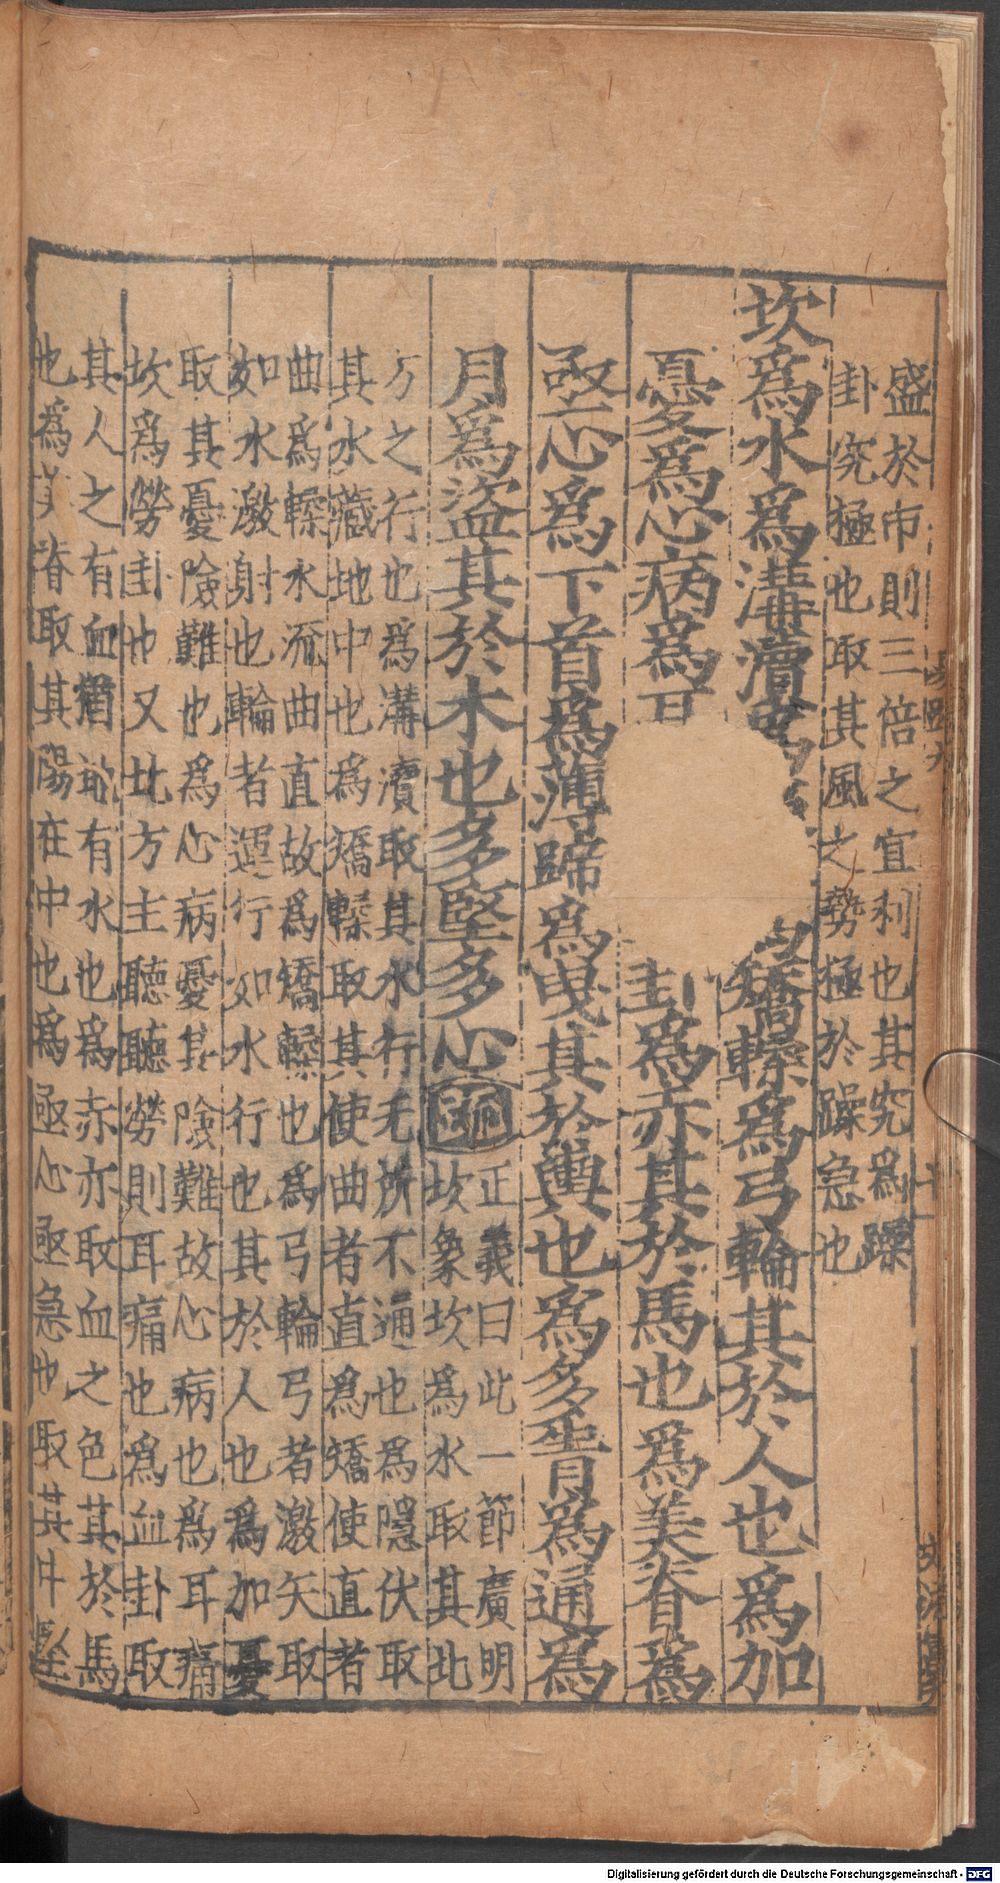 盛於市則三倍之宜利也其究爲躁
卦究極也取其風之勢極於躁急也
坎爲水爲溝瀆爲矯輮爲弓輪其於人也爲加
憂爲心病爲耳卦爲赤其於馬也爲美脊爲
亟心爲下首爲薄蹄爲曳其於輿也爲多眚爲通爲
月爲盜其於木也多堅多心
疏
正義曰此一節廣明
坎象坎爲水取其北
方之行也爲溝瀆取其水行无所不通也爲隱伏取
其水藏地中也爲矯輮取其使曲者直爲矯使直者
曲爲輮水流曲直故爲矯輮也爲弓輪弓者激矢取
如水激射也輪者運行如水行也其於人也爲加憂
取其憂險難也爲心病憂其險難故心病也爲耳痛
坎爲勞卦也又北方主聽聽勞則耳痛也爲血卦取
其人之有血猶地有水也爲赤亦取血之色其於馬
也爲美脊取其陽在中也爲亟心亟急也取其中堅
Digitalisierung gefördert durch die Deutsche Forschungsgemeinschaft - DFG